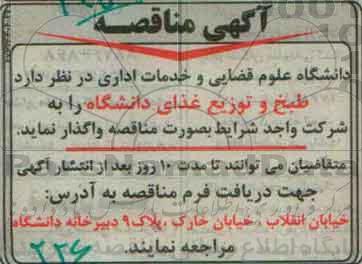 آگهی مناقصه
دانشگاه علوم قضایی و خدمات اداری در نظر دارد
طبخ و توزیع غذای دانشگاه را به
شرکت واجد شرایط بصورت مناقصه واگذار نماید.
متقاضیان می توانند تا مدت ۱۰ روز بعد از انتشار آگهی
جهت دریافت فرم مناقصه به آدرس:
خیابان انقلاب ، خیابان خارک ، پلاک۹ دبیرخانه دانشگاه
مراجعه نمایند.
۲۲۶